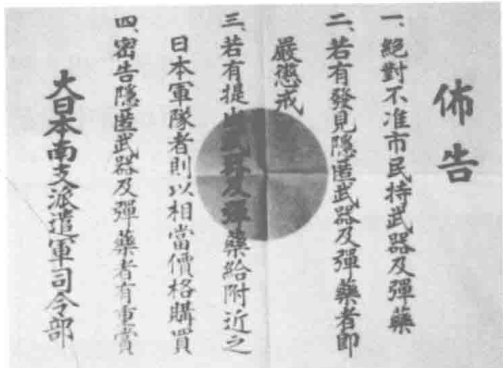 佈告
一、絕對不准市民持武器及彈藥
二、若有發見隱匿武器及彈藥者即
嚴懲戒
三、若有提出武器及彈藥給附近之
日本軍隊者則以相當價格購買
四、密告隱匿武器及彈藥者有重賞
大日本南支派遣軍司令部